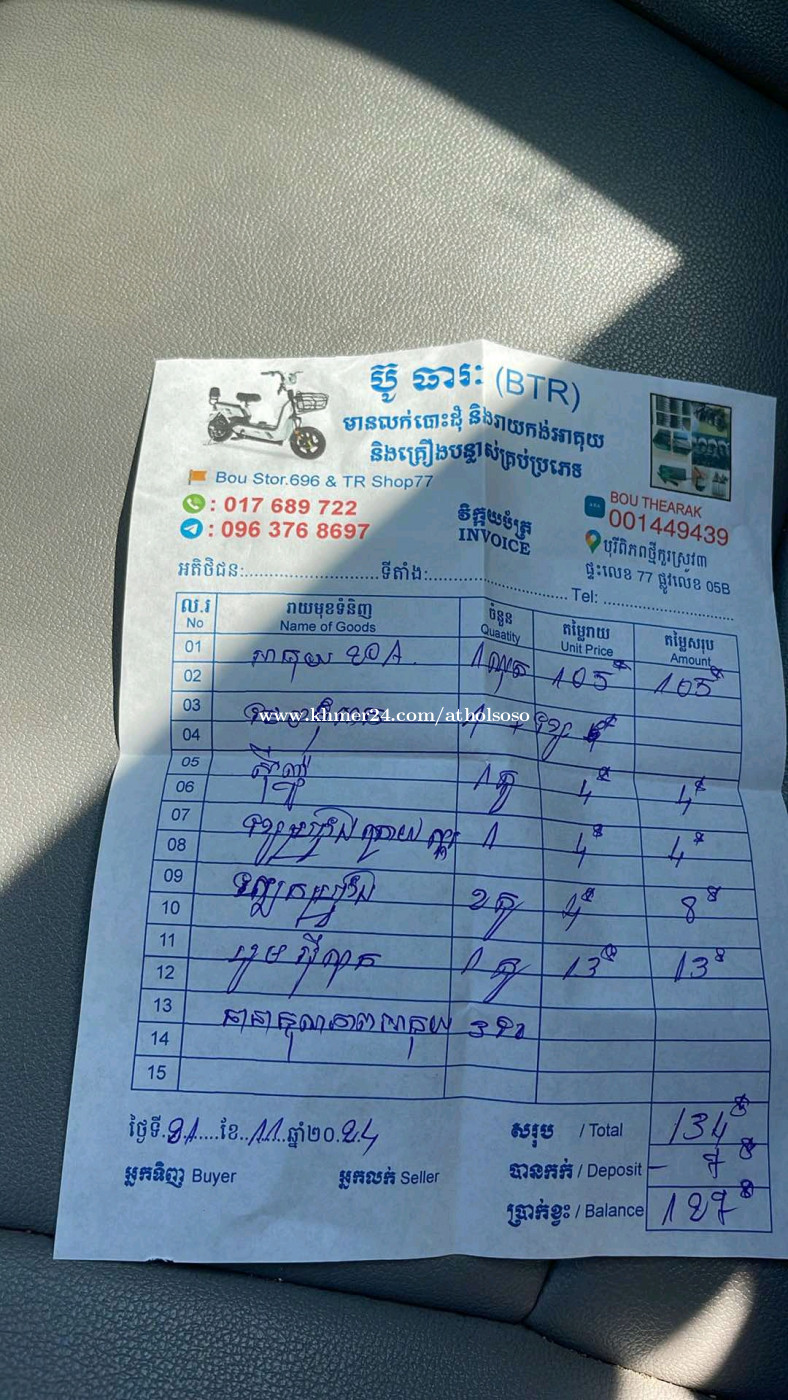 ប៊ូ ធារៈ (BTR)
មានលក់បោះដុំ និងរាយកង់អាគុយ
និងគ្រឿងបន្លាស់គ្រប់ប្រភេទ
Bou Stor.696 & TR Shop77
: 017 689 722
: 096 376 8697
វិក្កយបត្រ
INVOICE
BOU THEARAK
001449439
បុរីពិភពថ្មីកួរស្រូវ៣
ផ្ទះលេខ 77 ផ្លូវលេខ 05B
អតិថិជន:........................ទីតាំង:........................ Tel: ........................
ល.រ រាយមុខទំនិញ ចំនួន តម្លៃរាយ តម្លៃសរុប
No Name of Goods Quaatity Unit Price Amount
01
អាគុយ 20A. 1 ឈុត 105$ 105$
02
03
www.khmer24.com/atholsoso
04
05
1 គូ 4$ 4$
06
07
1 4$ 4$
08
09
2 គូ 4$ 8$
10
11
1 គូ 13$ 13$
12
13
14
15
ថ្ងៃទី.21....ខែ..11..ឆ្នាំ២០.24
សរុប / Total 134$
បានកក់ / Deposit - 7$
ប្រាក់ខ្វះ / Balance 127$
អ្នកទិញ Buyer អ្នកលក់ Seller